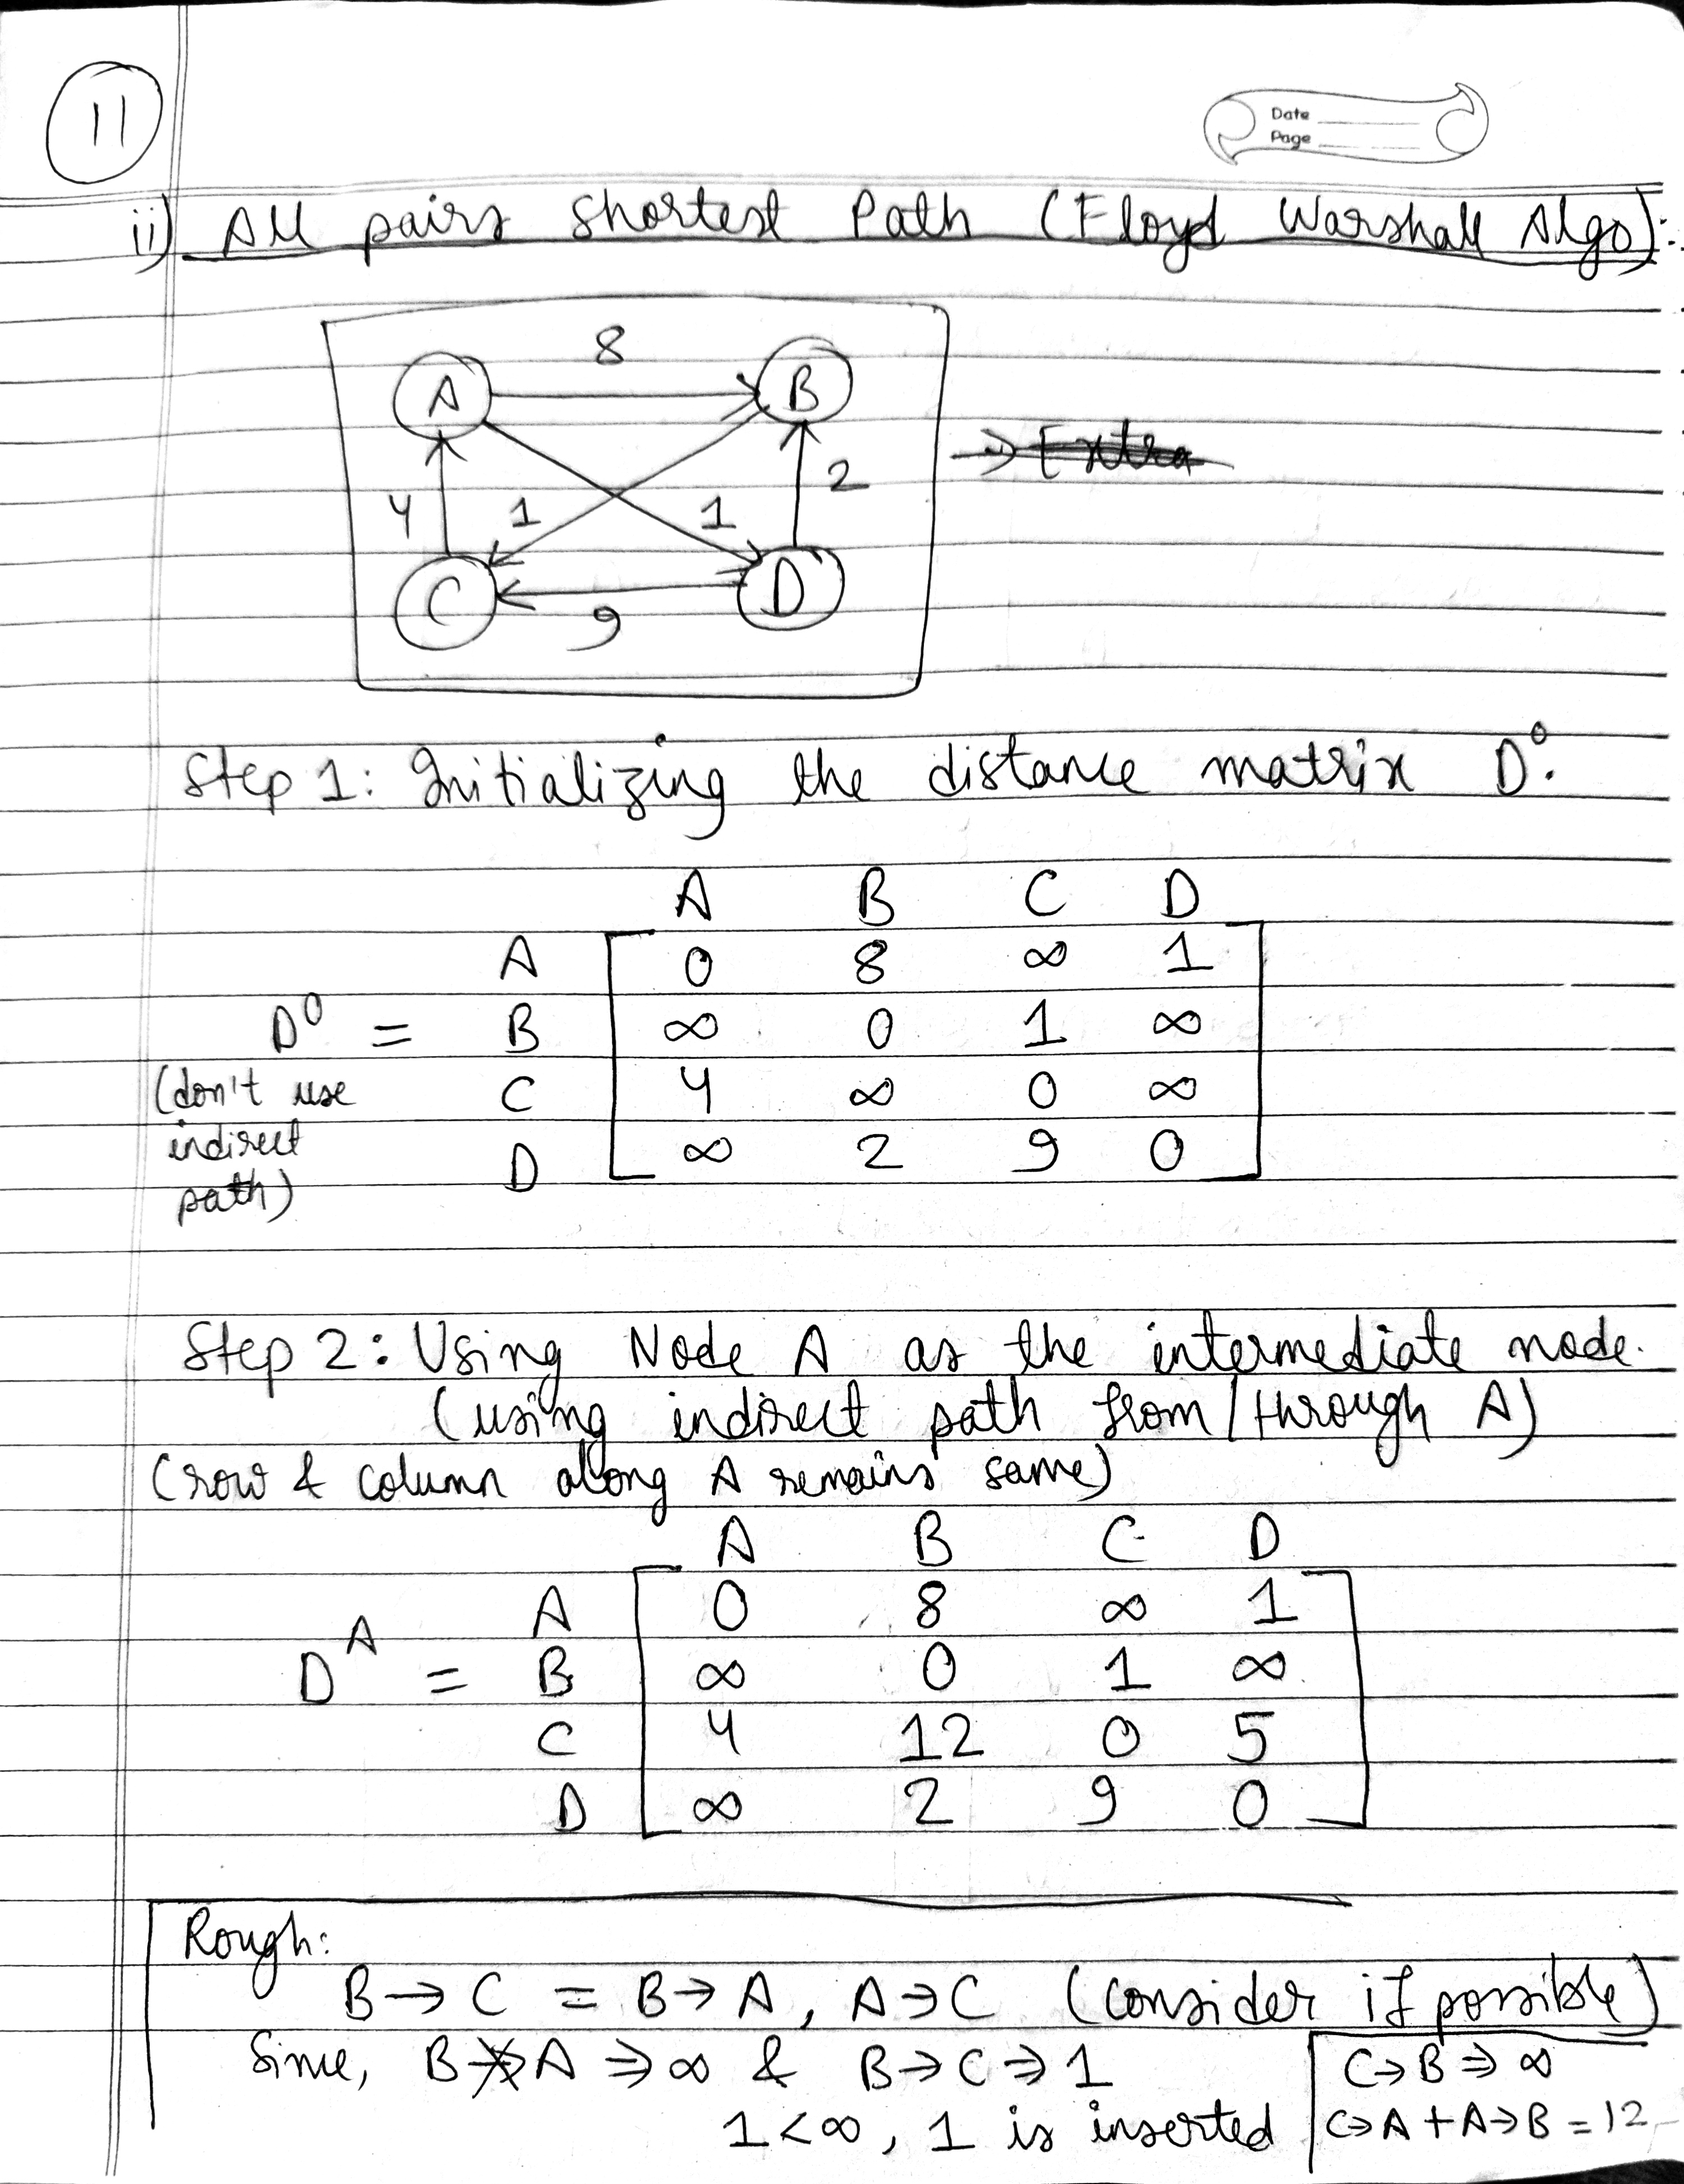 11
Date
Page
ii) All pairs shortest Path (Floyd Warshall Algo):
8
A B
→ Extra
4 1 1 2
C D
9
Step 1: Initializing the distance matrix D⁰.
A B C D
A 0 8 ∞ 1
D⁰ = B ∞ 0 1 ∞
(don't use C 4 ∞ 0 ∞
indirect D ∞ 2 9 0
path)
Step 2: Using Node A as the intermediate node.
(using indirect path from/through A)
(row & column along A remains same)
A B C D
A 0 8 ∞ 1
Dᴬ = B ∞ 0 1 ∞
C 4 12 0 5
D ∞ 2 9 0
Rough:
B → C = B → A, A → C (consider if possible)
Since, B ↛ A ⇒ ∞ & B → C ⇒ 1
C → B ⇒ ∞
1 < ∞, 1 is inserted
C → A + A → B = 12